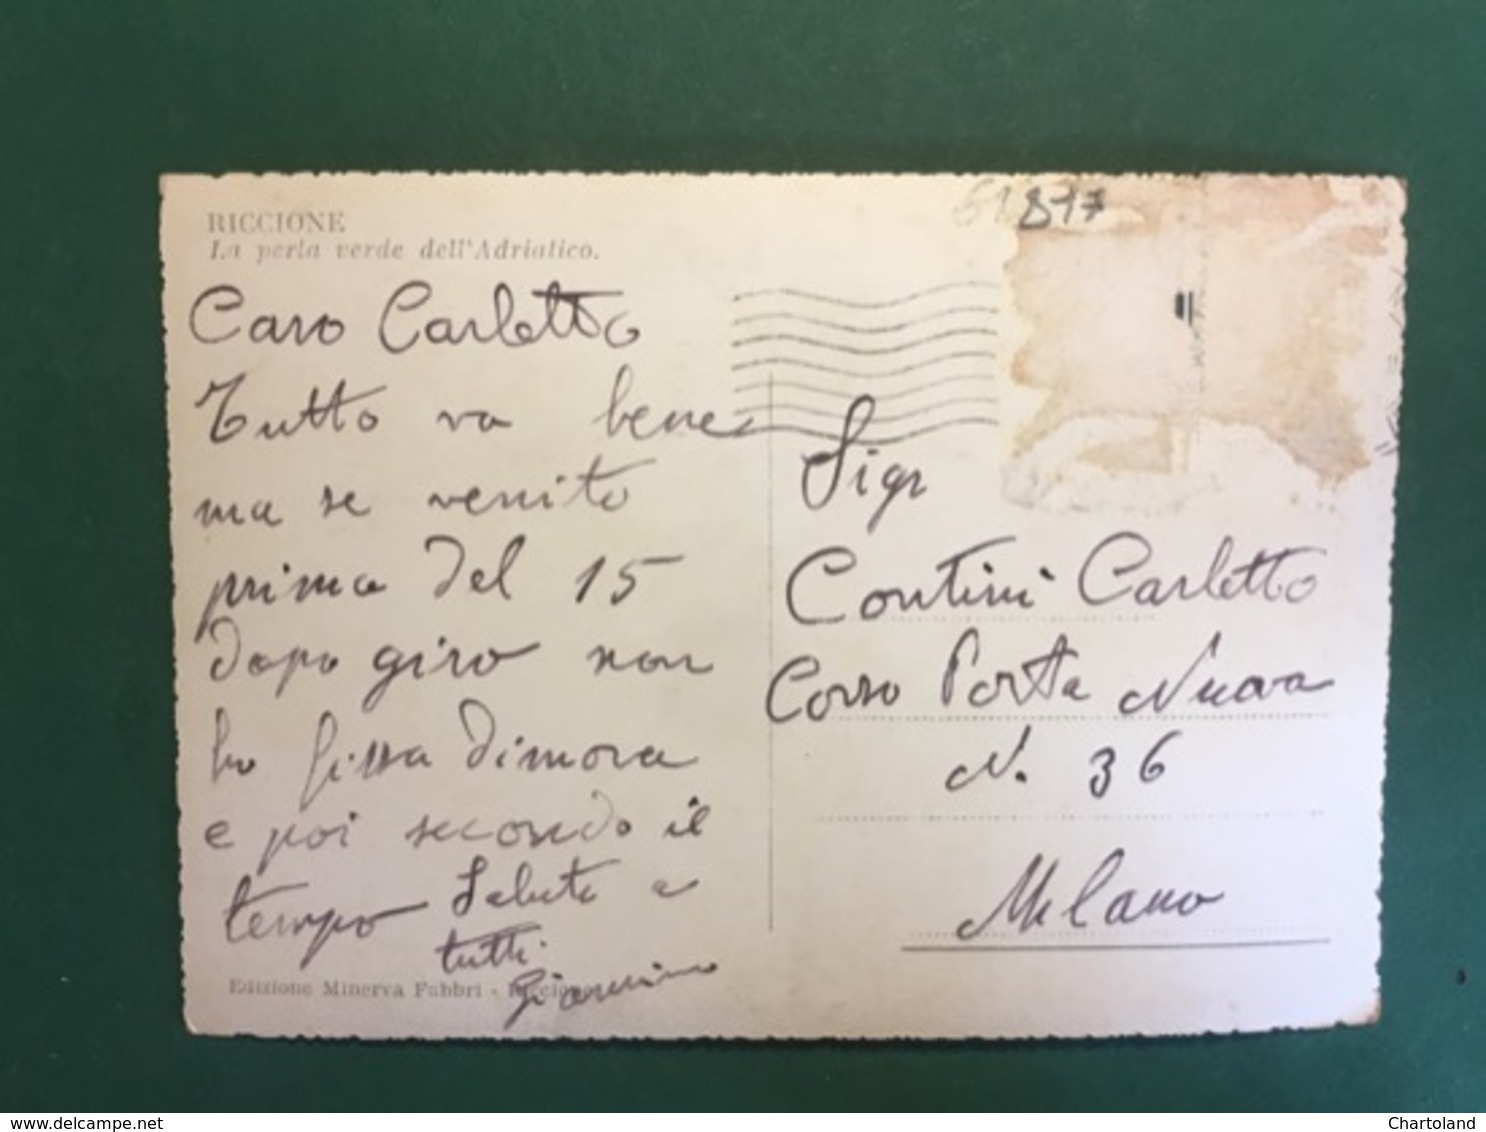 RICCIONE
La perla verde dell'Adriatico.
Caro Carletto
Tutto va bene
ma se venite
prima del 15
dopo giro non
ho fissa dimora
e poi secondo il
tempo Saluti a
tutti
Giannino
Edizione Minerva Fabbri - Riccione
61817
Sigr
Contini Carletto
Corso Porta Nuova
N. 36
Milano
www.delcampe.net
Chartoland